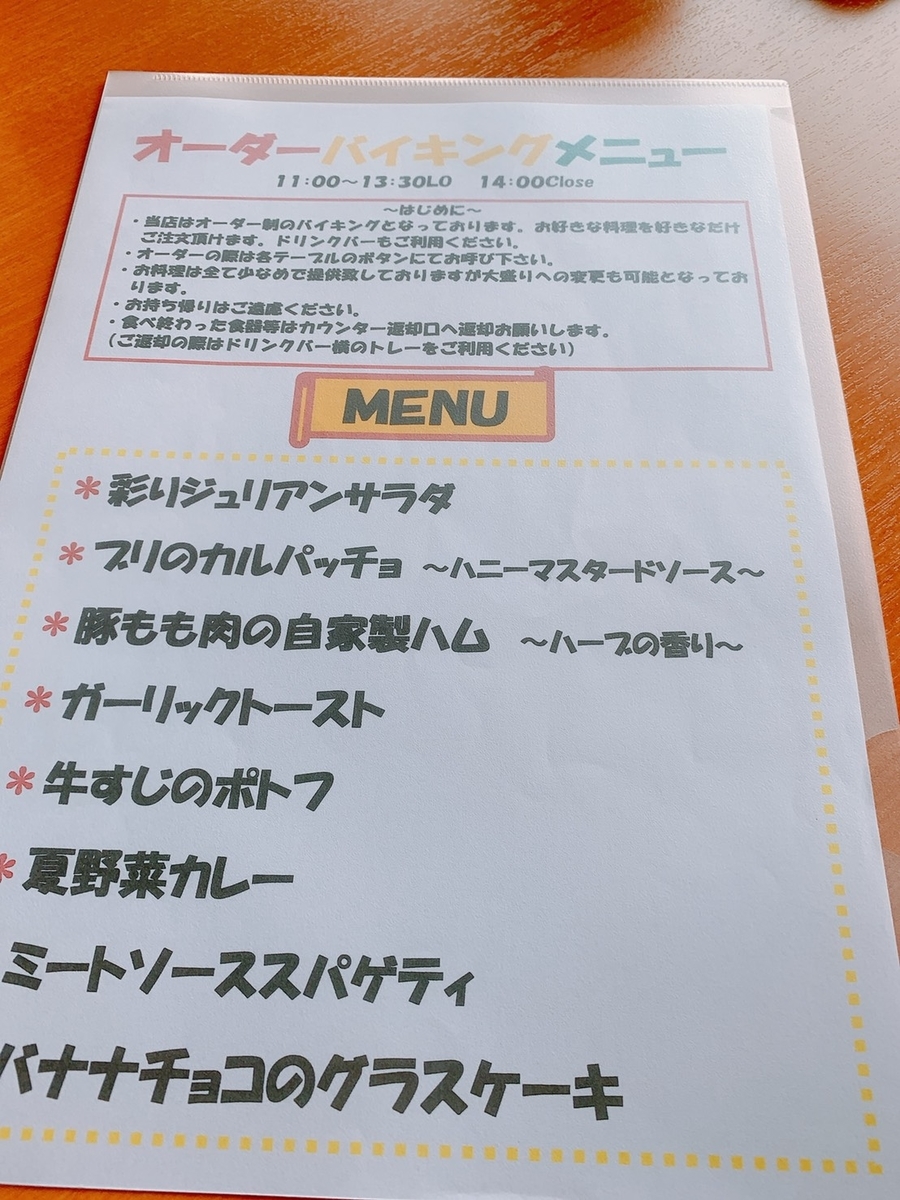 オーダーバイキングメニュー
11:00～13:30LO 14:00Close
～はじめに～
・当店はオーダー制のバイキングとなっております。お好きな料理を好きなだけ
ご注文頂けます。ドリンクバーもご利用ください。
・オーダーの際は各テーブルのボタンにてお呼び下さい。
・お料理は全て少なめで提供致しておりますが大盛りへの変更も可能となってお
ります。
・お持ち帰りはご遠慮ください。
・食べ終わった食器等はカウンター返却口へ返却お願いします。
（ご返却の際はドリンクバー横のトレーをご利用ください）
MENU
*彩りジュリアンサラダ
*ブリのカルパッチョ ～ハニーマスタードソース～
*豚もも肉の自家製ハム ～ハーブの香り～
*ガーリックトースト
*牛すじのポトフ
*夏野菜カレー
ミートソーススパゲティ
バナナチョコのグラスケーキ